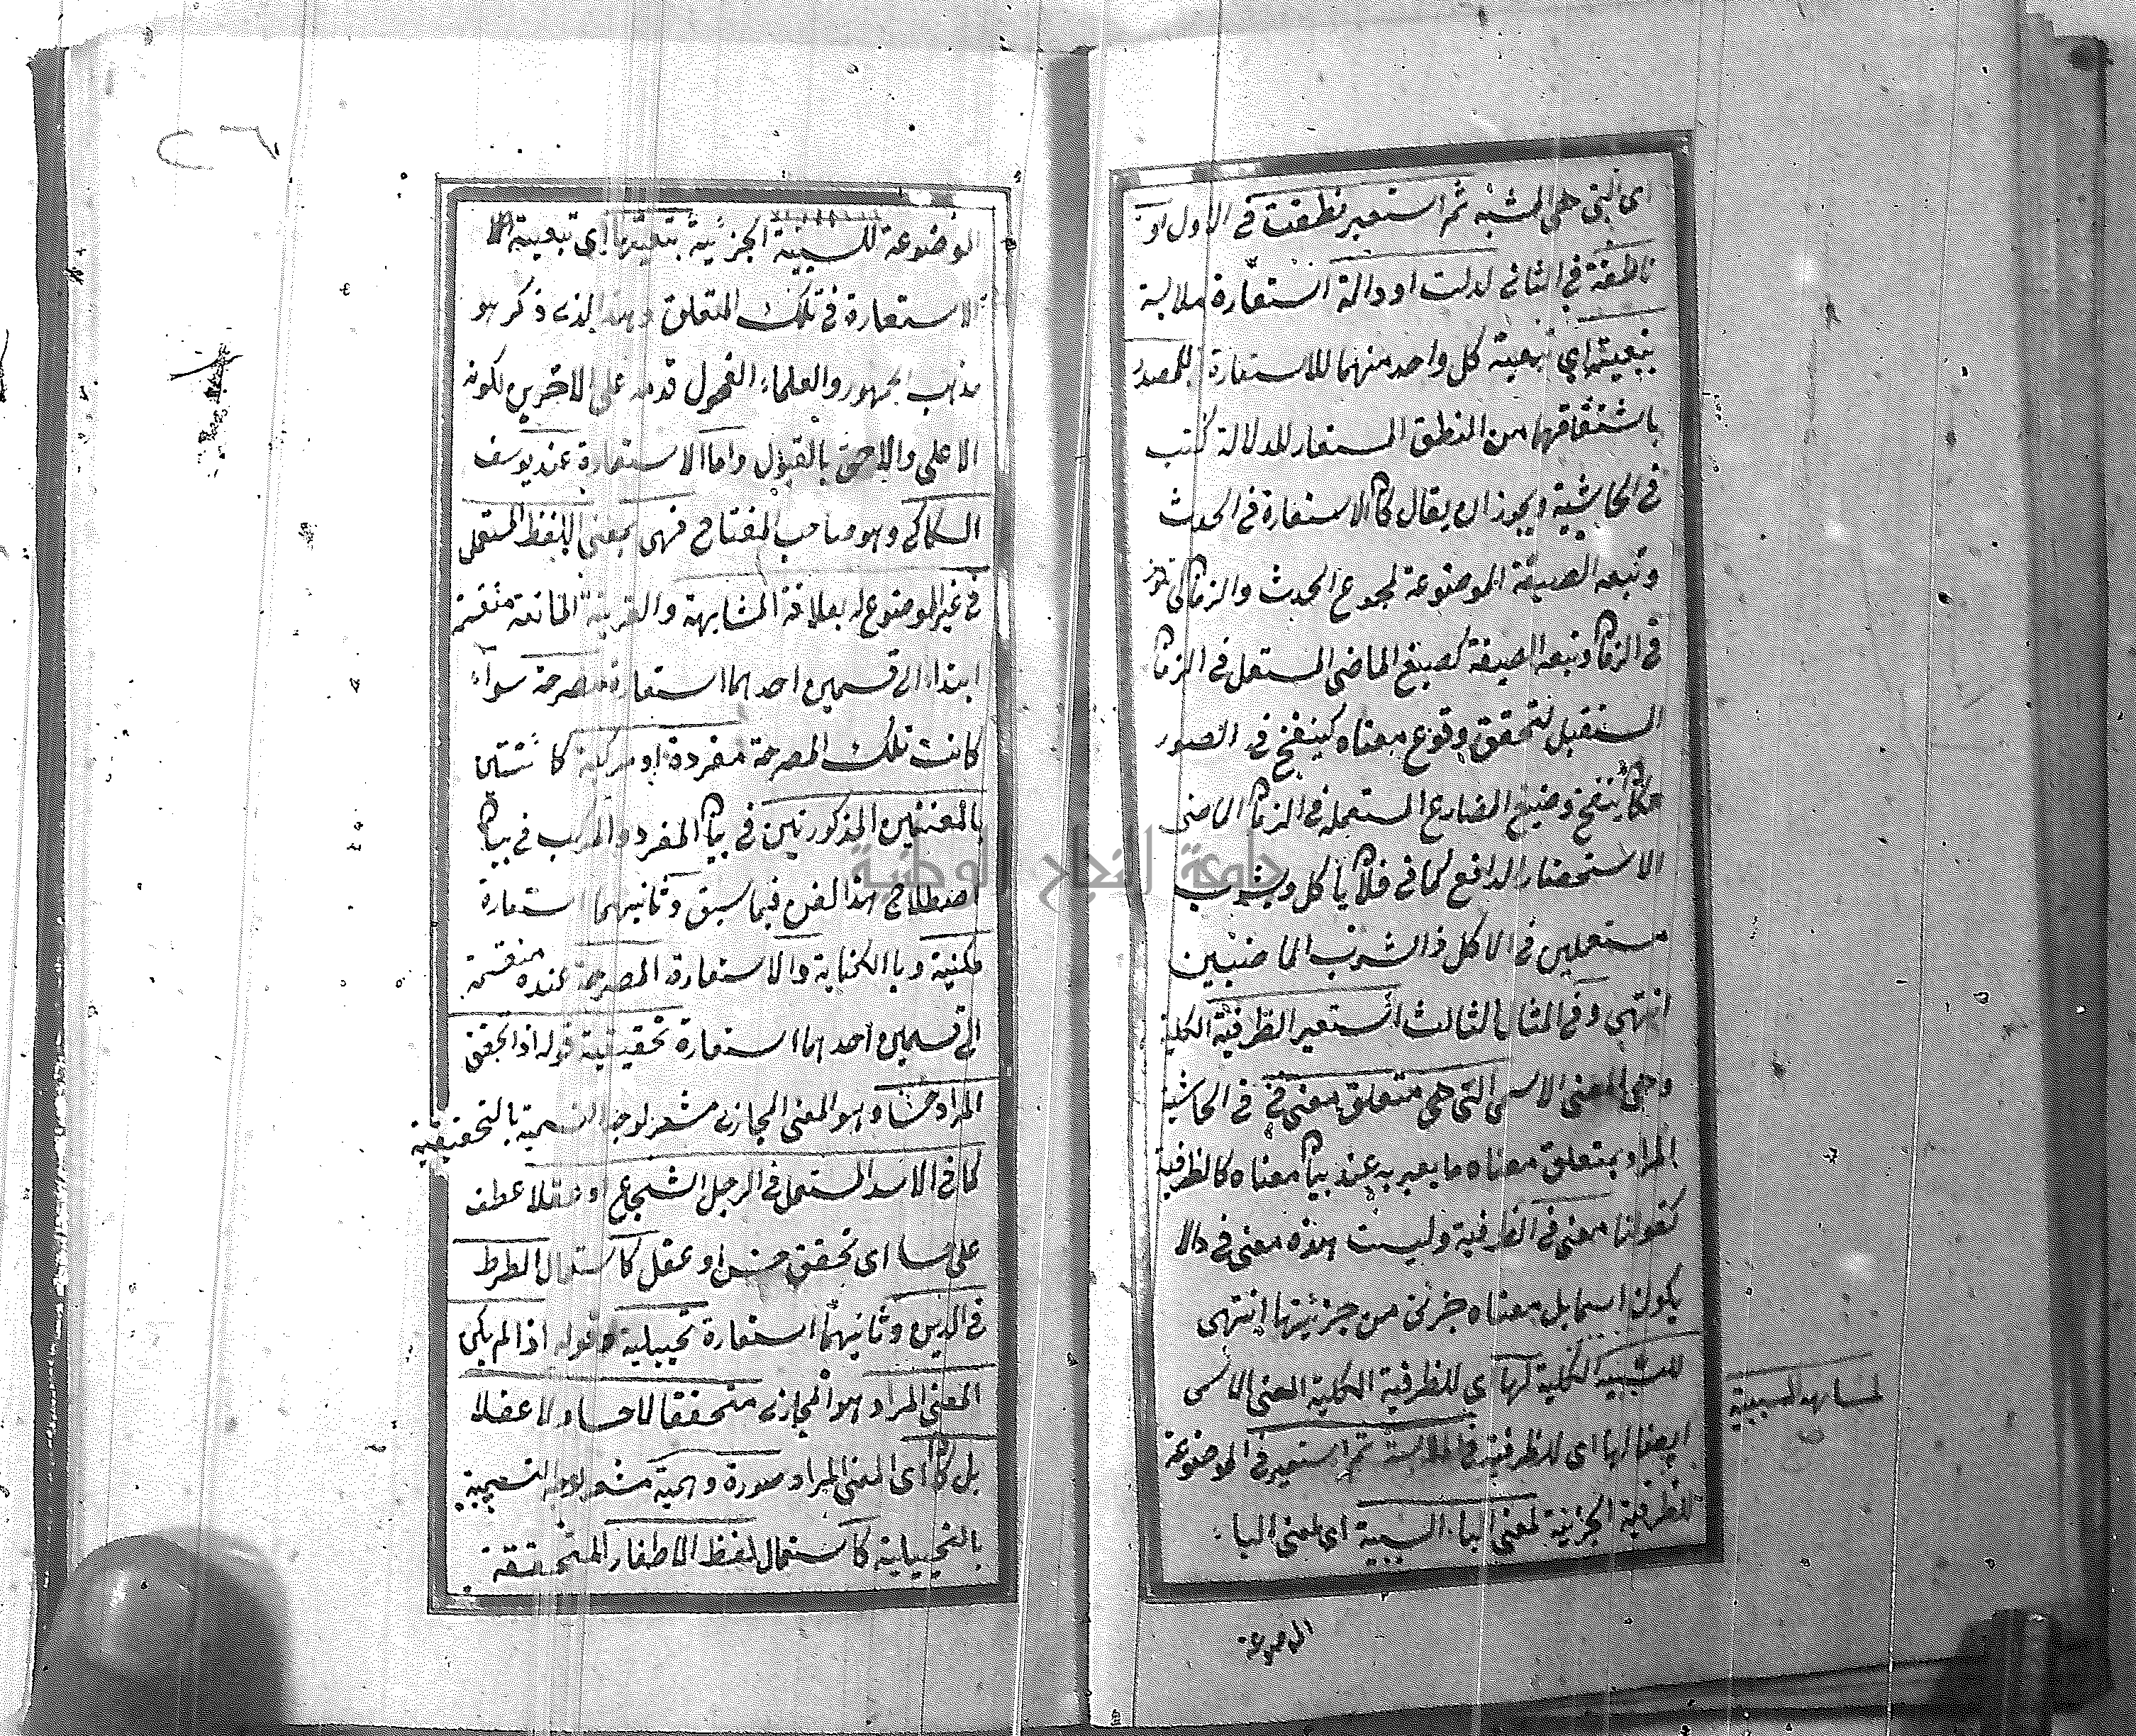 اى التى هى المشبه ثم استعير نطقت فى الاول او
ناطقة فى الثانى لدلت او دالة استعارة ملابسة
بتبعيتها اى تبعية كل واحد منهما للاستعارة للمصدر
باشتقاقهما من النطق المستعار للدلالة كتب
فى الحاشية ويجوز ان يقال كان الاستعارة فى الحدث
وتبعه الصيغة الموضوعة لمجموع الحدث والزمان
فى الزمان وتبعه الصيغة كصيغ الماضى المستعمل فى الزمان
المستقبل لتحقق وقوع معناه كينفخ فى الصور
ينفخ وصيغ المضارع المستعملة فى الزمان الماضى
الاستحضار الدافع كما فى فلان ياكل ويشرب
مستعملين فى الاكل والشرب الماضيين
انتهى وفى المثال الثالث استعير الظرفية الكلية
وهى المعنى الاسمى التى هى متعلق معنى فى فى الحاشية
المراد بمتعلق معناه ما يعبر به عند بيان معناه كالظرفية
كقولنا معنى فى الظرفية وليست هذه معنى فى والا
يكون اسما بل معناه جزئى من جزئيتها انتهى
للسببية الكلية لها اى للظرفية الكلية المعنى الاسمى
لمشابهة السببية
ايضا لها اى للظرفية فى الملابسة ثم استعير فى الموضوعة
للظرفية الجزئية لمعنى البا السببية اى لمعنى البا
الموضوعة
٢٦
الموضوعة للسببية الجزئية بتبعيتها اى تبعية
الاستعارة فى تلك المتعلق وهذا الذى ذكر هو
مذهب الجمهور والعلماء الفحول قدمه على الاخرين لكونه
الاعلى والاحق بالقبول واما الاستعارة عند يوسف
السكاكى وهو صاحب المفتاح فهى بمعنى اللفظ المستعمل
فى غير الموضوع له بعلاقة المشابهة والقرينة المانعة منقسمة
ابتداء الى قسمين احدهما استعارة مصرحة سواء
كانت تلك المصرحة مفردة او مركبة كائنتين
بالمعنيين المذكورتين فى بيان المفرد والمركب فى بيان
اصطلاح هذا الفن فيما سبق وثانيهما استعارة
مكنية وبالكناية والاستعارة المصرحة عنده منقسمة
الى قسمين احدهما استعارة تحقيقية قوله اذا تحقق
المراد حسا وهو المعنى المجازى مشعر لوجه التسمية بالتحقيقية
كما فى الاسد المستعمل فى الرجل الشجاع او عقلا عطف
على حسا اى تحقق حس او عقل كاستعمال الصراط
فى الدين وثانيهما استعارة تخييلية وقوله اذا لم يكن
المعنى المراد وهو المجازى متحققا لا حسا ولا عقلا
بل كان اى المعنى المراد صورة وهمية مشعر لوجه التسمية
بالتخييلية كاستعمال لفظ الاظفار المتحققة
جامعة النجاح الوطنية